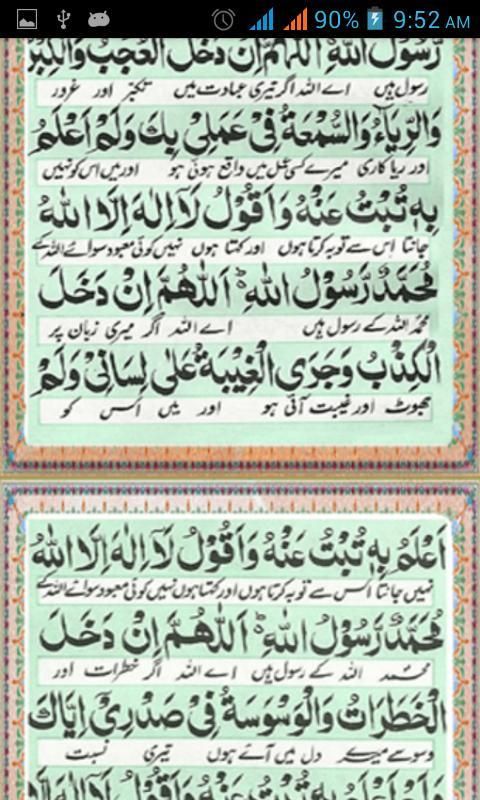 90% 9:52 AM
رَّسُوْلُ اللهِ اَللّٰهُمَّ اِنْ دَخَلَ الْعُجْبُ وَالْكِبْرُ
رسول ہیں اے اللہ اگر تیری عبادت میں تکبّر اور غرور
وَالرِّيَاءُ وَالسُّمْعَةُ فِىْ عَمَلِىْ بِكَ وَلَمْ اَعْلَمُ
اور ریا کاری میرے کسی عمل میں واقع ہوئی ہو اور میں اس کو نہیں
بِهٖ تُبْتُ عَنْهُ وَاَقُوْلُ لَآ اِلٰهَ اِلَّا اللهُ
جانتا اس سے توبہ کرتا ہوں اور کہتا ہوں نہیں کوئی معبود سوائے اللہ کے
مُحَمَّدٌ رَّسُوْلُ اللهِ ؕ اَللّٰهُمَّ اِنْ دَخَلَ
محمّد اللہ کے رسول ہیں اے اللہ اگر میری زبان پر
الْكِذْبُ وَجَرَى الْغِيْبَةُ عَلٰى لِسَانِىْ وَلَمْ
جھوٹ اور غیبت آئی ہو اور میں اُس کو
اَعْلَمُ بِهٖ تُبْتُ عَنْهُ وَاَقُوْلُ لَآ اِلٰهَ اِلَّا اللهُ
نہیں جانتا اس سے توبہ کرتا ہوں اور کہتا ہوں نہیں کوئی معبود سوائے اللہ کے
مُحَمَّدٌ رَّسُوْلُ اللهِ ؕ اَللّٰهُمَّ اِنْ دَخَلَ
محمد اللہ کے رسول ہیں اے اللہ اگر خطرات اور
الْخَطَرَاتُ وَالْوَسْوَسَةُ فِىْ صَدْرِىْ اِيَّاكَ
وسوسے میرے دل میں آئے ہوں تیری نسبت
وَلَمْ اَعْلَمُ بِهٖ تُبْتُ عَنْهُ وَاَقُوْلُ لَآ اِلٰهَ اِلَّا